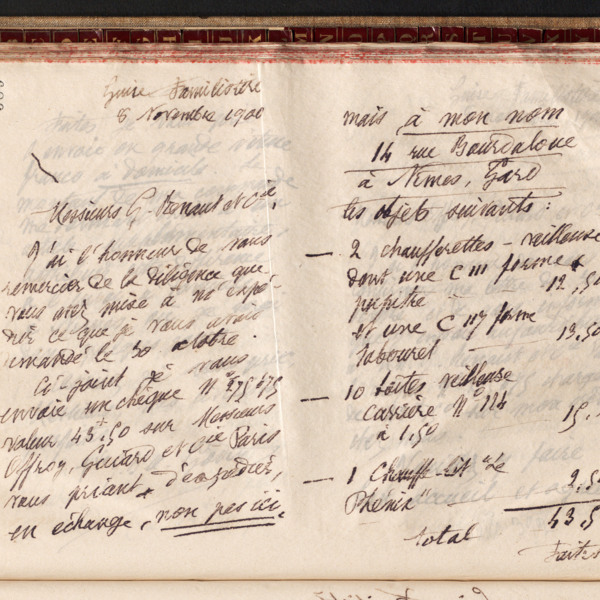 Guise Familistère
8 Novembre 1900
Messieurs G. et Cie,
J'ai l'honneur de vous
remercier de la diligence que
vous avez mise à m'expé-
dier ce que je vous avais
demandé le 30 octobre.
Ci-joint je vous
envoie un chèque N° 275 
valeur 43f,50 sur Messieurs
Offroy, Guiard et Cie Paris
vous priant d'expédier,
en échange, non pas ici,
mais à mon nom
14 rue Bourdaloue
à Nîmes, Gard
les objets suivants :
— 2 chaufferettes - veilleuse
dont une C 111 forme
pupitre 12,50
et une C 117 forme
tabouret 13,50
— 10 boîtes veilleuse
Carrière N° 114
à 1,50 15,
— 1 Chauffe-Lit "Le
Phénix" 2,5
total 43,5
Faites